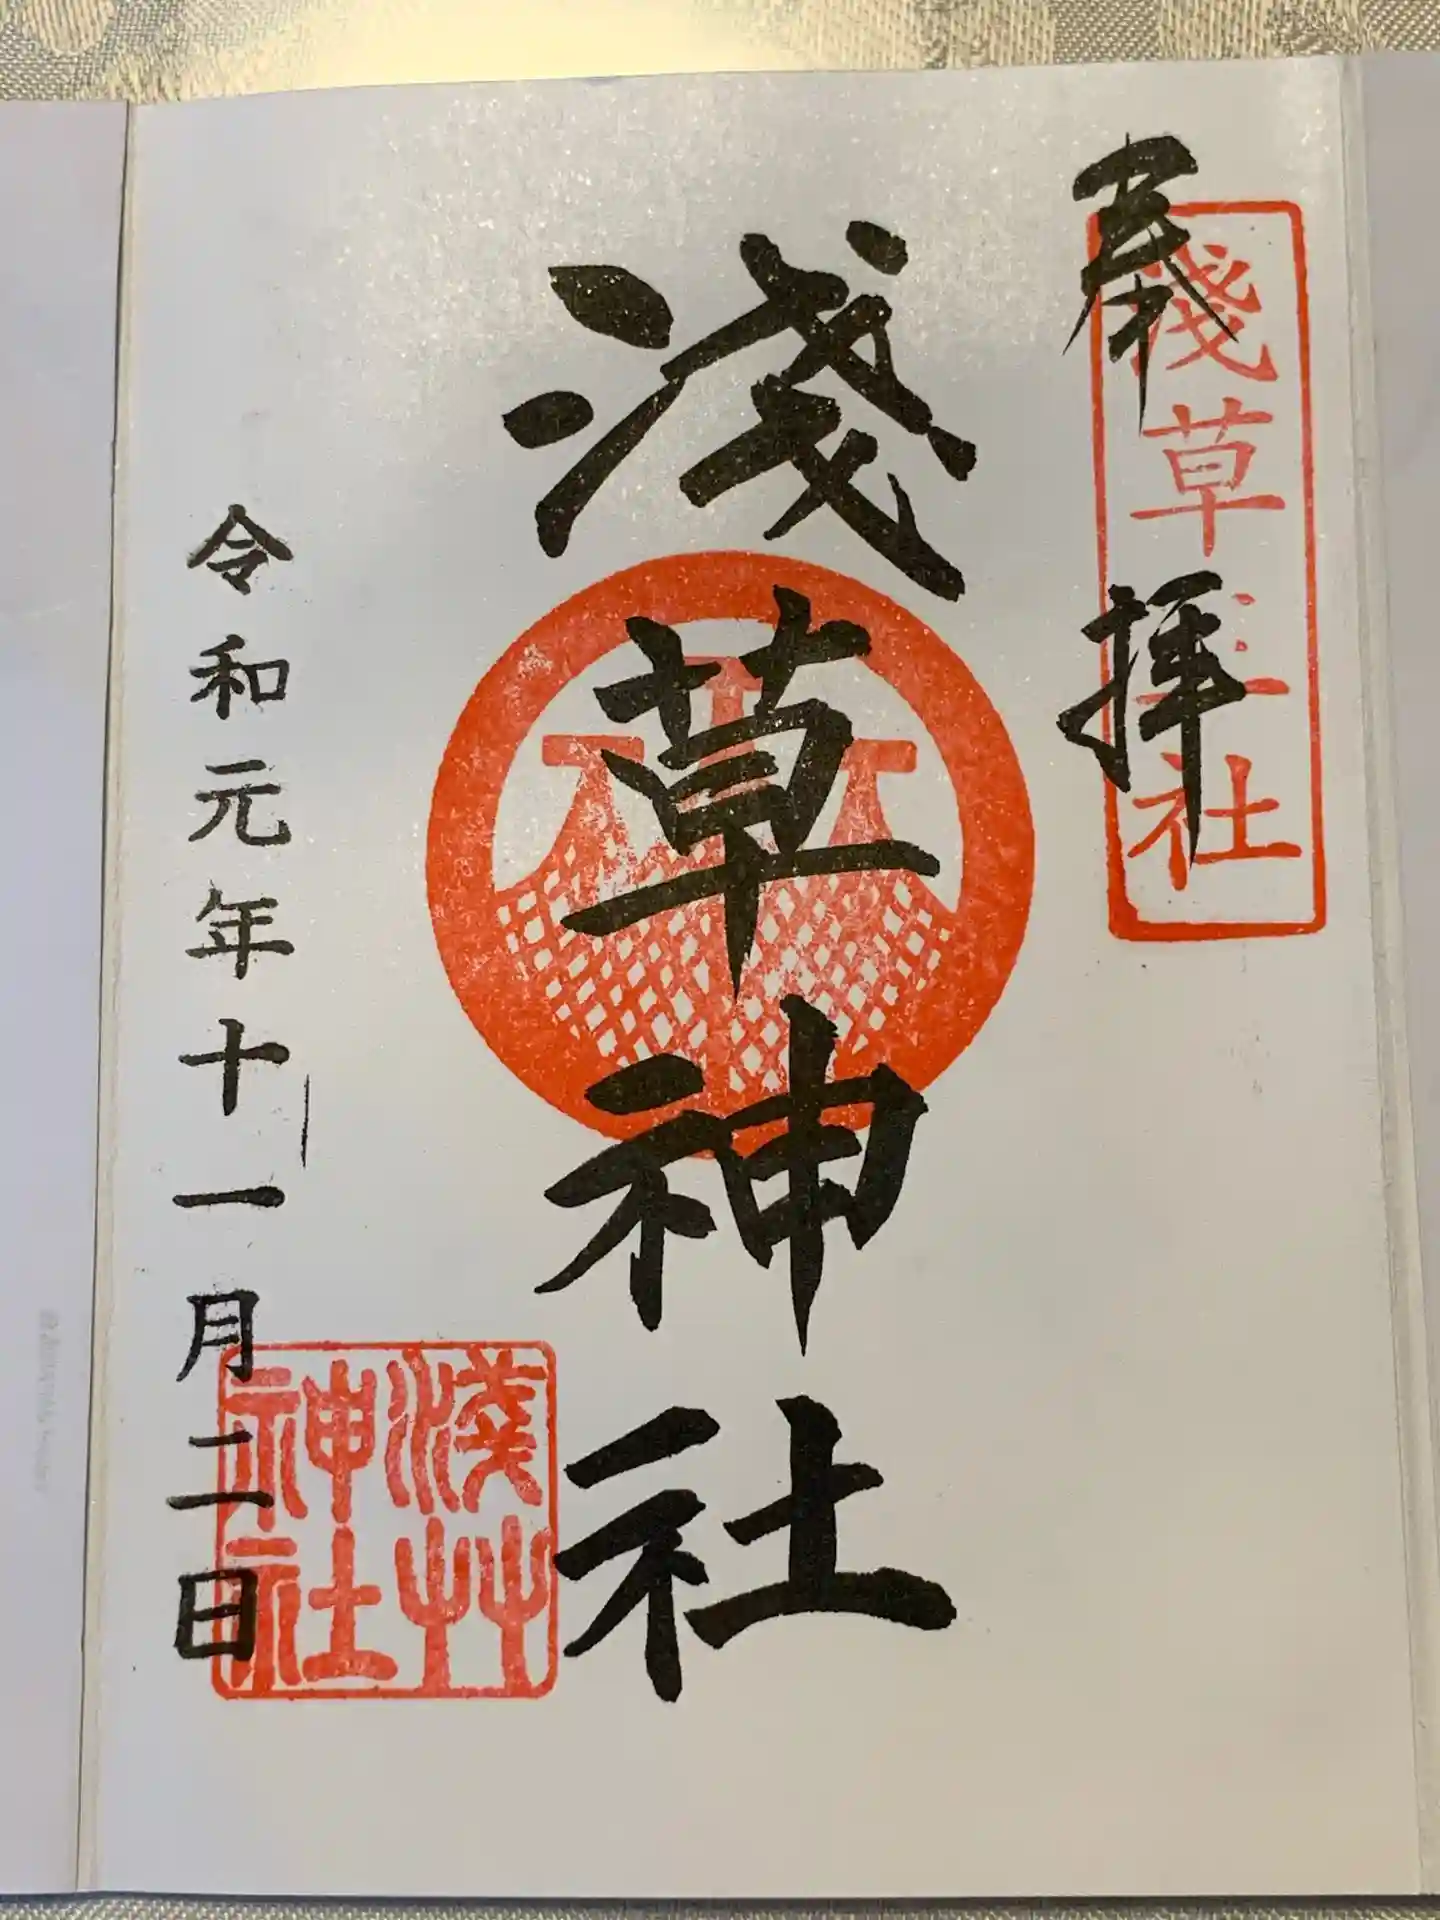 奉拝
淺草三社
淺草神社
令和元年十一月二日
淺草
神社